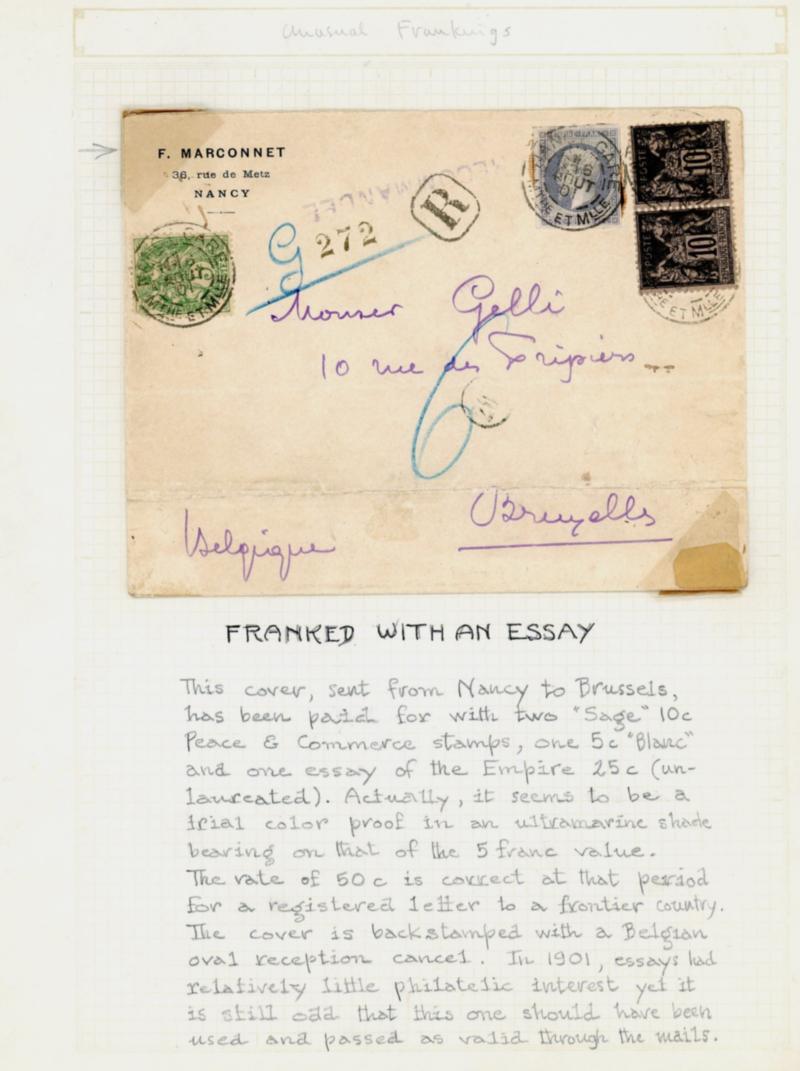 Unusual Frankings
F. MARCONNET
36, rue de Metz
NANCY
RECOMMANDEE
R
G
272
NANCY GARE
AOUT
MTHE ET MLLE
POSTES
10
10
Monser Gelli
10 rue des Fripiers
6
Bruxelles
Belgique
FRANKED WITH AN ESSAY
This cover, sent from Nancy to Brussels,
has been paid for with two "Sage" 10c
Peace & Commerce stamps, one 5c "Blanc"
and one essay of the Empire 25c (un-
laureated). Actually, it seems to be a
trial color proof in an ultramarine shade
bearing on that of the 5 franc value.
The rate of 50c is correct at that period
for a registered letter to a frontier country.
The cover is backstamped with a Belgian
oval reception cancel. In 1901, essays had
relatively little philatelic interest yet it
is still odd that this one should have been
used and passed as valid through the mails.